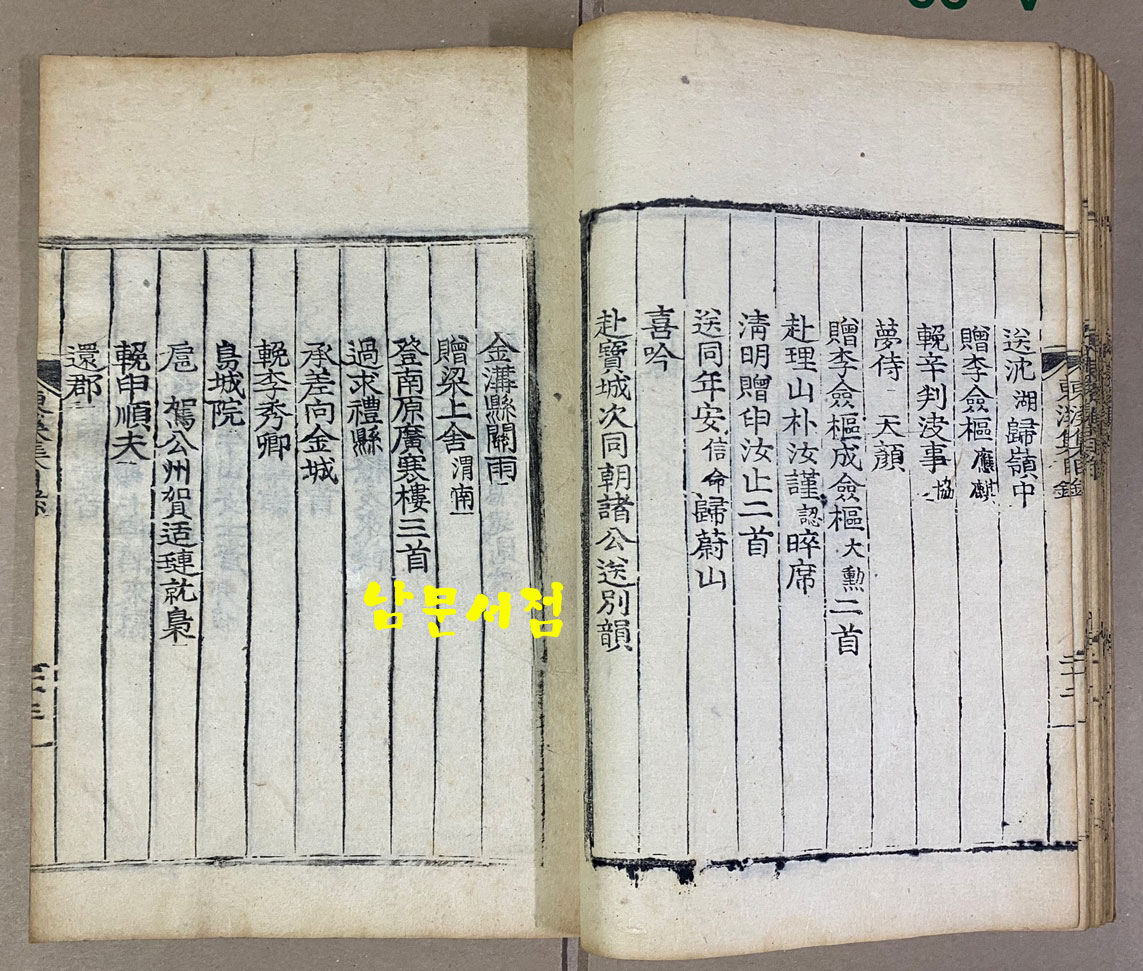 送沈湖歸嶺中
贈李僉樞應麒
輓辛判決事協
夢侍 天顔
贈李僉樞成僉樞大勳二首
赴理山朴汝謹認晬席
清明贈申汝止二首
送同年安信命歸蔚山
喜吟
赴寶城次同朝諸公送別韻
金溝縣關雨
贈梁上舍渭南
登南原廣寒樓三首
過求禮縣
承差向金城
輓李秀卿
島城院
扈 駕公州賀适璉就梟
輓申順夫
還郡
二十二
남문서점